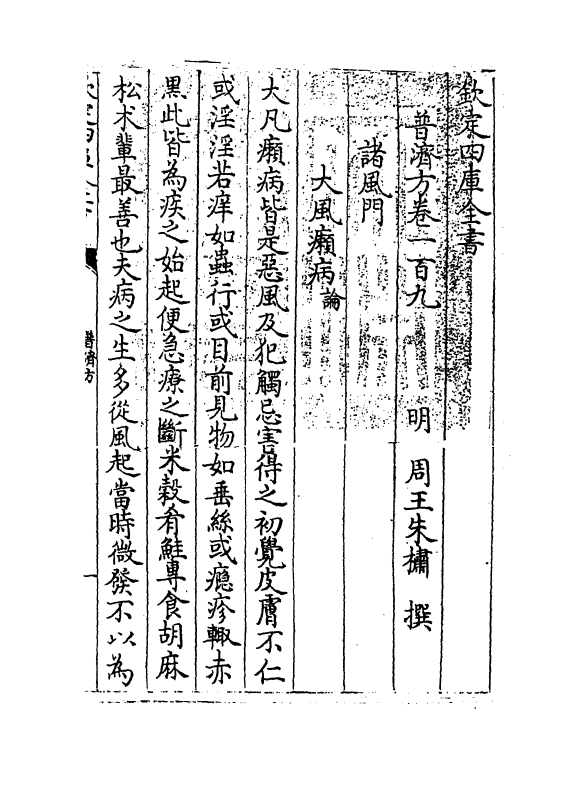 欽定四庫全書
普濟方卷一百九　明　周王朱橚　撰
諸風門
大風癩病論
大凡癩病皆是惡風及犯觸忌害得之初覺皮膚不仁
或淫淫若痒如蟲行或目前見物如垂絲或癮疹輙赤
黒此皆為疾之始起便急療之斷米穀肴鮭專食胡麻
松术輩最善也夫病之生多從風起當時微發不以為
普濟方
一